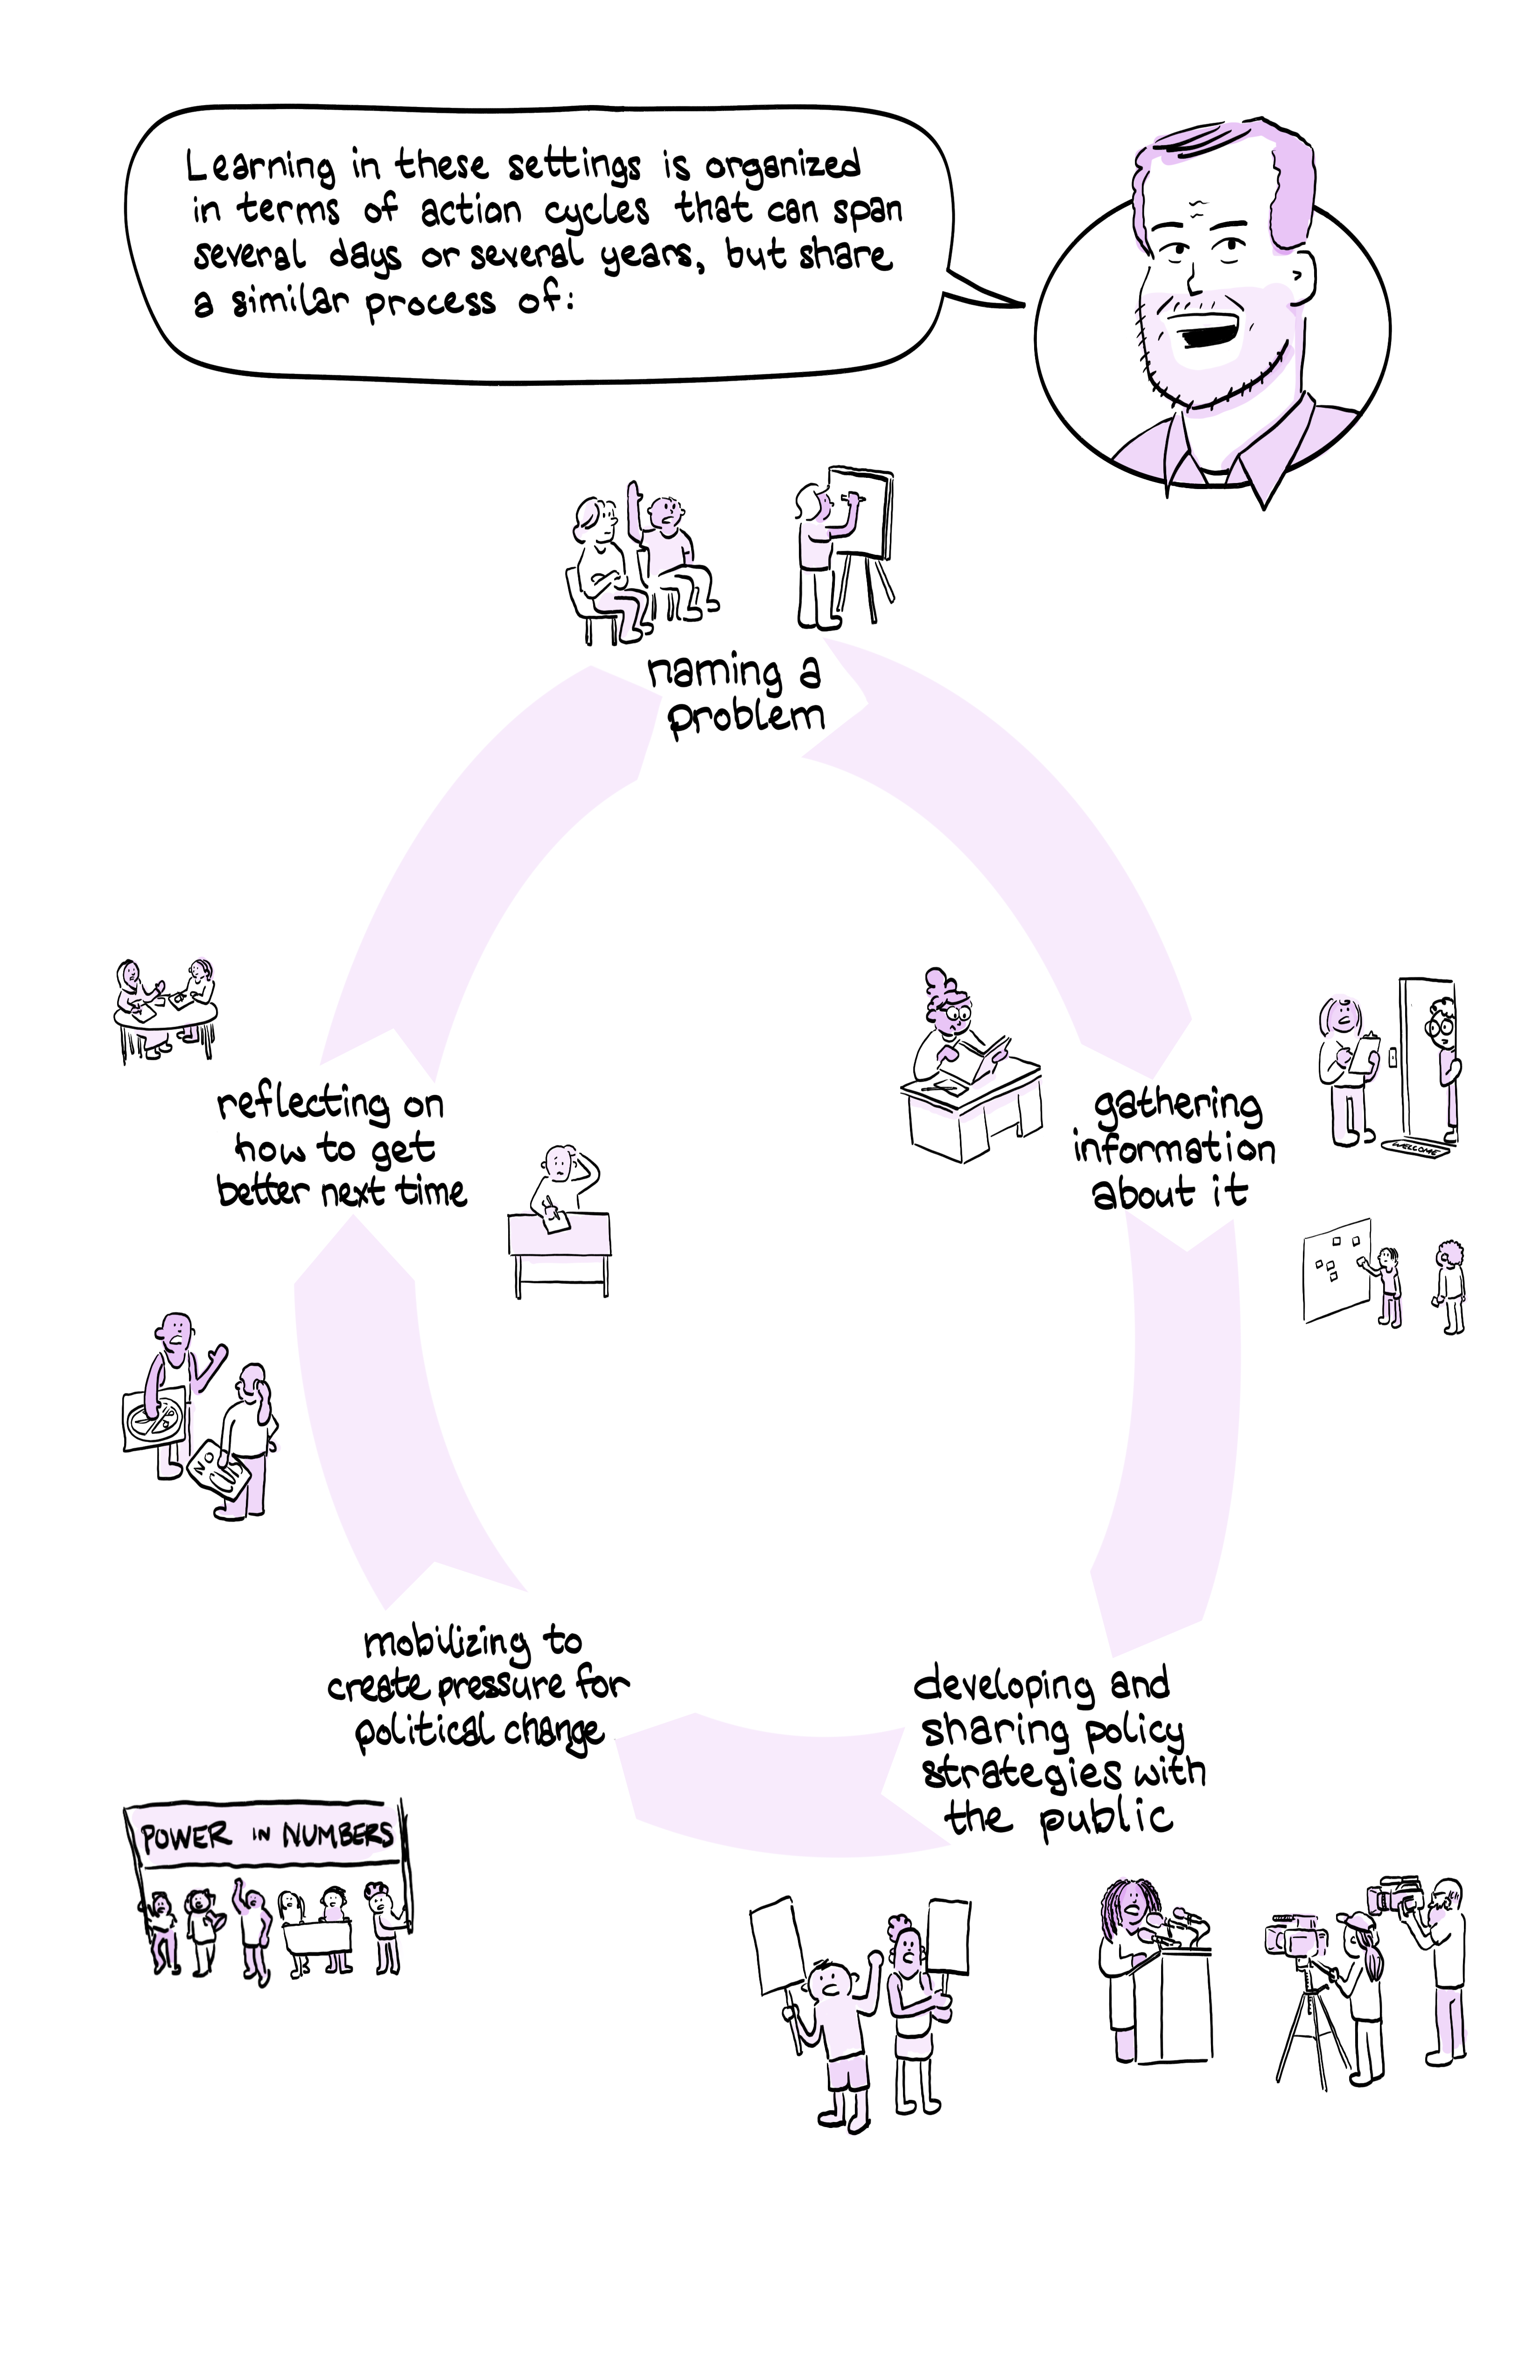 Learning in these settings is organized
in terms of action cycles that can span
several days or several years, but share
a similar process of:
naming a
problem
gathering
information
about it
WELCOME
developing and
sharing policy
strategies with
the public
mobilizing to
create pressure for
political change
POWER IN NUMBERS
reflecting on
how to get
better next time